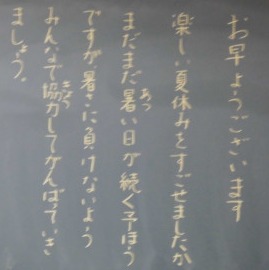 お早ようございます
楽しい夏休みをすごせましたか
まだまだ暑い日が続く予ほう
ですが暑さに負けないよう
みんなで協力してがんばっていき
ましょう。